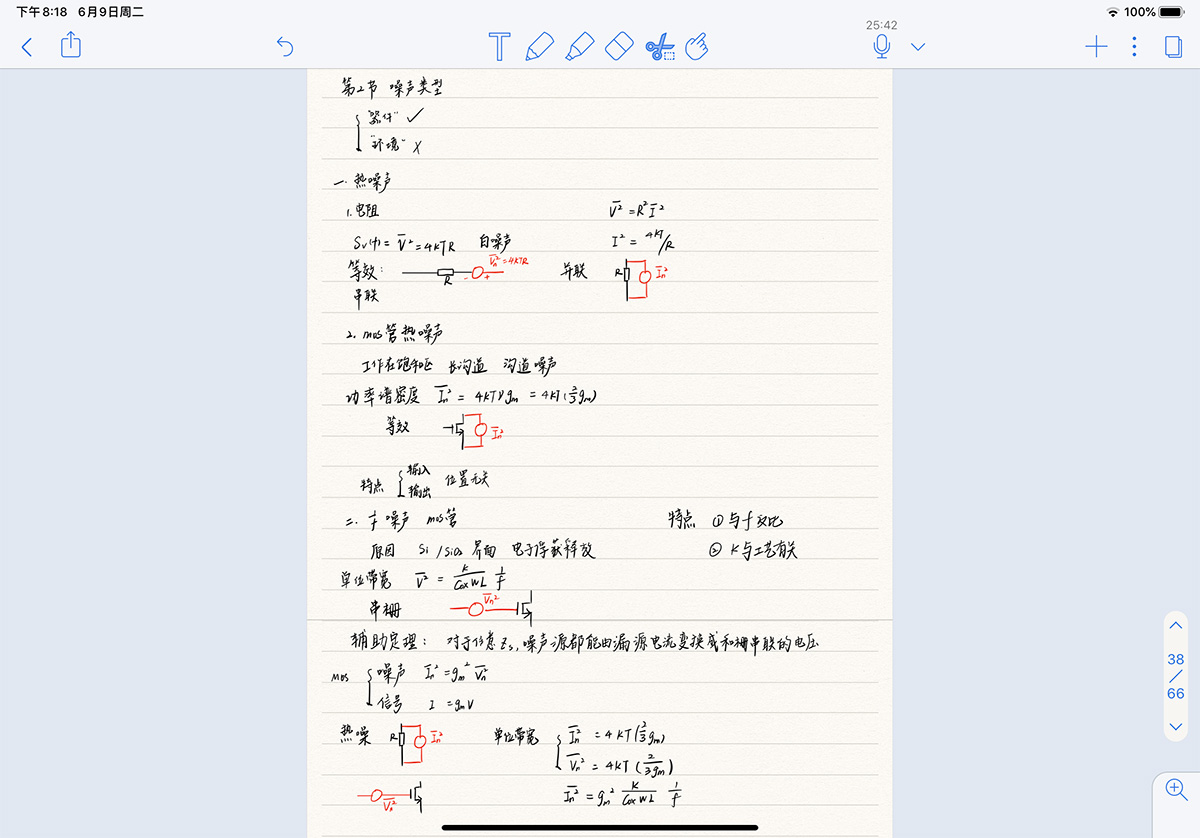 下午8:18 6月9日周二
100%
25:42
第2节 噪声类型
"器件" ✓
"环境" ×
一. 热噪声
1. 电阻
V̅² = R²I̅²
Sv(f) = V̅² = 4KTR 白噪声
I² = 4KT/R
等效: R - + V̅n² = 4KTR
并联 R I̅n²
串联
2. mos管热噪声
工作在饱和区 长沟道 沟道噪声
功率谱密度 I̅n² = 4KTγgm = 4KT(⅔gm)
等效 I̅n²
特点 { 输入 输出 位置无关
二. 1/f 噪声 mos管
特点 ① 与f反比
原因 Si/SiO₂ 界面 电子俘获释放
② K与工艺有关
单位带宽 V̅² = K/(CoxWL) 1/f
串栅 V̅n²
辅助定理: 对于任意Zs, 噪声源都能由漏源电流变换成和栅串联的电压
MOS { 噪声 I̅n² = gm² V̅n²
信号 I = gmV
热噪 R I̅n²
单位带宽 { I̅n² = 4KT(⅔gm)
V̅n² = 4KT(2/3gm)
V̅n²
I̅n² = gm² K/(CoxWL) 1/f
38
/
66